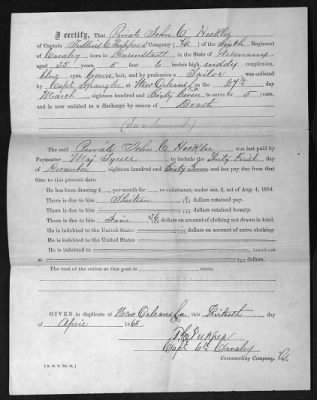 I certify, That Private John C. Heckler
of Captain Tullius C. Tupper's Company (G) of the Sixth Regiment
of Cavalry born in in the State of Germany
aged 25 years, 5 feet 6 inches high, ruddy complexion,
Grey eyes, brown hair, and by profession a Tailor was enlisted
by Capt. Spangler at New Orleans La. on the 27th day
of March eighteen hundred and Sixty Seven to serve for 5 years,
and is now entitled to a discharge by reason of Death
The said Private John C. Heckler was last paid by
Paymaster Maj. to include the Thirty First day
of December eighteen hundred and Sixty Seven and has pay due from that
time to the present date.
He has been drawing $ per month for re-enlistment, under sec. 2, act of Aug. 4, 1854.
There is due him dollars retained pay.
There is due him dollars retained bounty.
There is due him dollars on account of clothing not drawn in kind.
He is indebted to the United States dollars on account of extra clothing.
He is indebted to the United States
He is indebted to
at dollars.
The cost of the ration at this post is cents.
GIVEN in duplicate at New Orleans La, this Thirtieth day
of April 1868
T. C. Tupper
Capt. 6th Cavalry
Commanding Company. G.